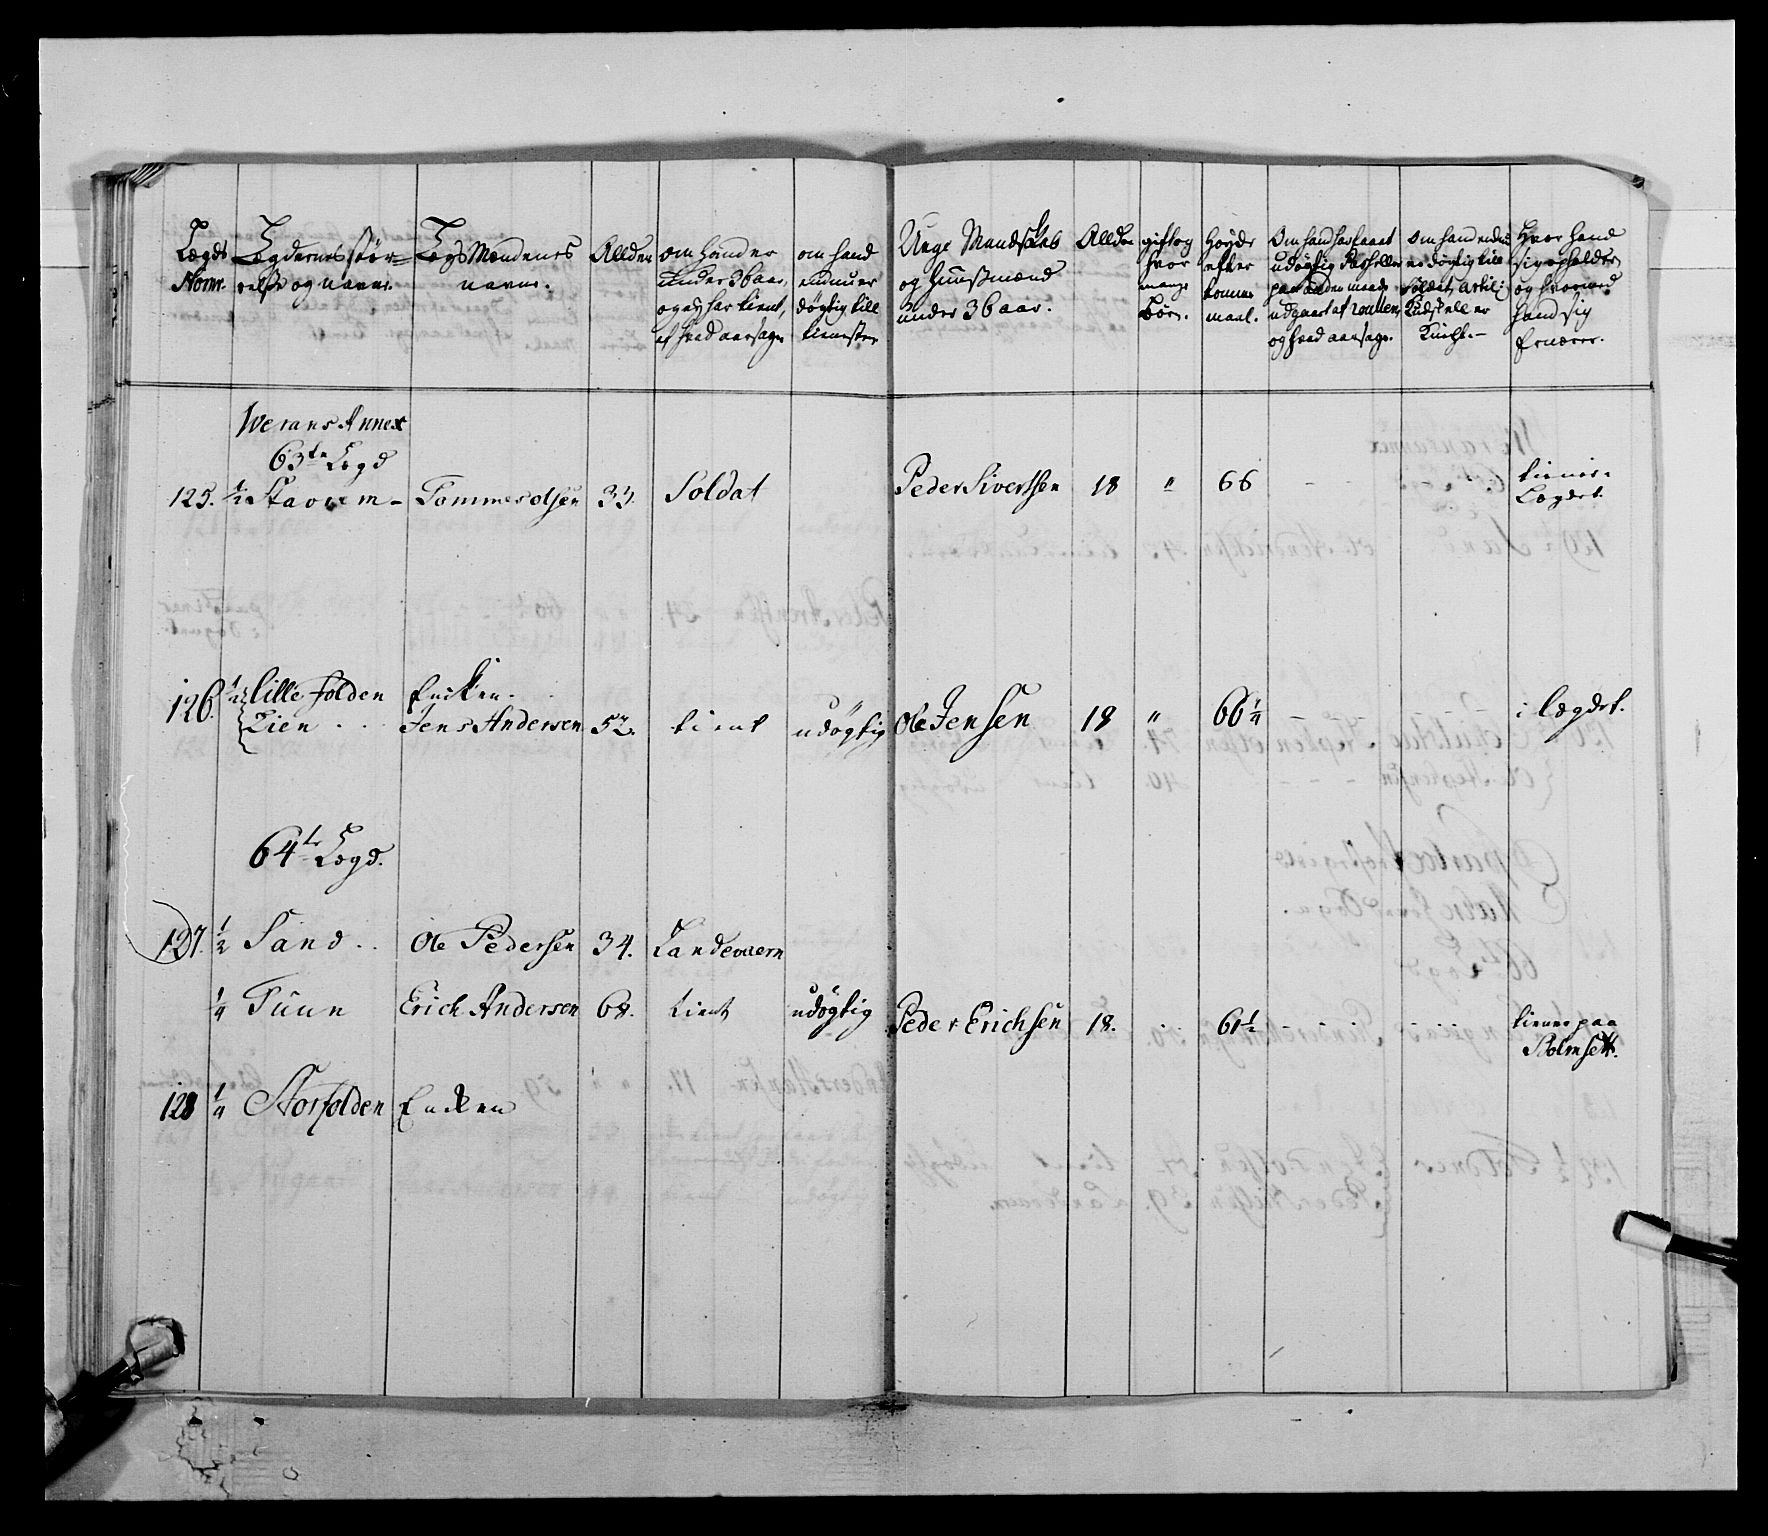 Lægds Nomr.
Lægdernes stør= relse og navne.
Lægs Mændenes navne.
Allder
om hand er under 36 aar, og ej har tient, af hvad aarsage
om hand endnu er døgtig till tieneste
Unge Mandskab og Huusmænd under 36 aar.
Allder
gift og hvor mange Børn.
Høyde efter tomme maal.
Om hand har staaet udøgtig Rulleret, paa anden maade udgaaet af roullen, og hvad aarsage.
Om hand endnu er døgtig till Soldat, Artil: Kudsk eller Knegt.-
Hvor hand sig opholder og hvormed hand sig ernærer.
Werans Annex
63de Lægd
125. 1/2 Staarem - Tommes Olsen 33. Soldat Peder Sivertsen 18 " 66 - - - tiener i Lægdet.
126. 1/2 Lille folden Encken.
Lien . . . Jens Andersen 52. tient udøgtig Ole Jensen 18 " 66 1/4 - - - i Lægdet.
64de Lægd.
127. 1/2 Sand . . Ole Pedersen 34. Landeværn
1/4 Tuun Erich Andersen 68. tient udøgtig Peder Erichsen 18. . . 61 1/2 - - - . . . tiener paa Holmsett.
128 1/4 Storfolden Encken